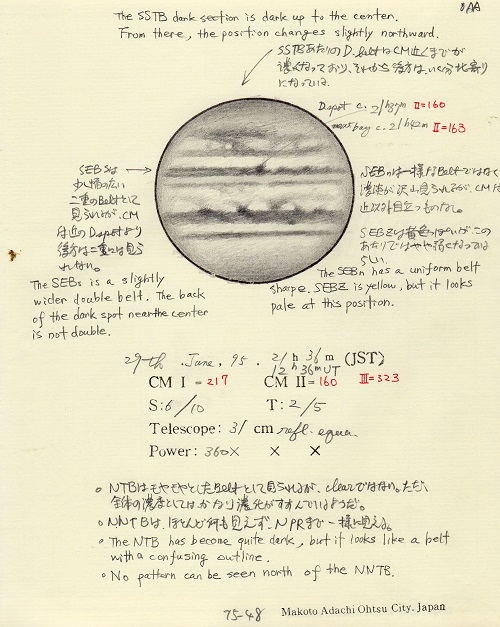 The SSTB dark section is dark up to the center.
From there, the position changes slightly northward.
SSTBあたりのD. beltはCM近くまでが
濃くなっており、それから後方はいく分北寄り
になっている。
D. spot c. 21h39m II=160
bay c. 21h42m II=163
SEBsは
少し幅の広い
二重のBeltとして
見られるが、CM
付近のD.spotより
後方は二重には見ら
れない。
SEBnは一様なBeltではなく
濃淡が沢山見られるが、CM付
近以外目立つものなし。
SEBZは黄色っぽいがこの
あたりではやや弱くなっている
らしい。
The SEBs is a slightly
wider double belt. The back
of the dark spot near the center
is not double.
The SEBn has a uniform belt
sharpe. SEBZ is yellow, but it looks
pale at this position.
29th. June, 95. 21h 36m (JST)
12h 36m UT
CM I = 217 CM II = 160 III = 323
S: 6/10 T: 2/5
Telescope: 31 cm refl. equa.
Power: 360× × ×
○ NTBはモヤモヤとしたBeltとして見られるが、clearではない。ただ、
全体の濃度としてはかなり濃化がすすんでいるようだ。
○ NNTBは、ほとんど何も見えず、NPRまで一様に見える。
○ The NTB has become quite dark, but it looks like a belt
with a confusing outline.
○ No pattern can be seen north of the NNTB.
75-48 Makoto Adachi Ohtsu City, Japan